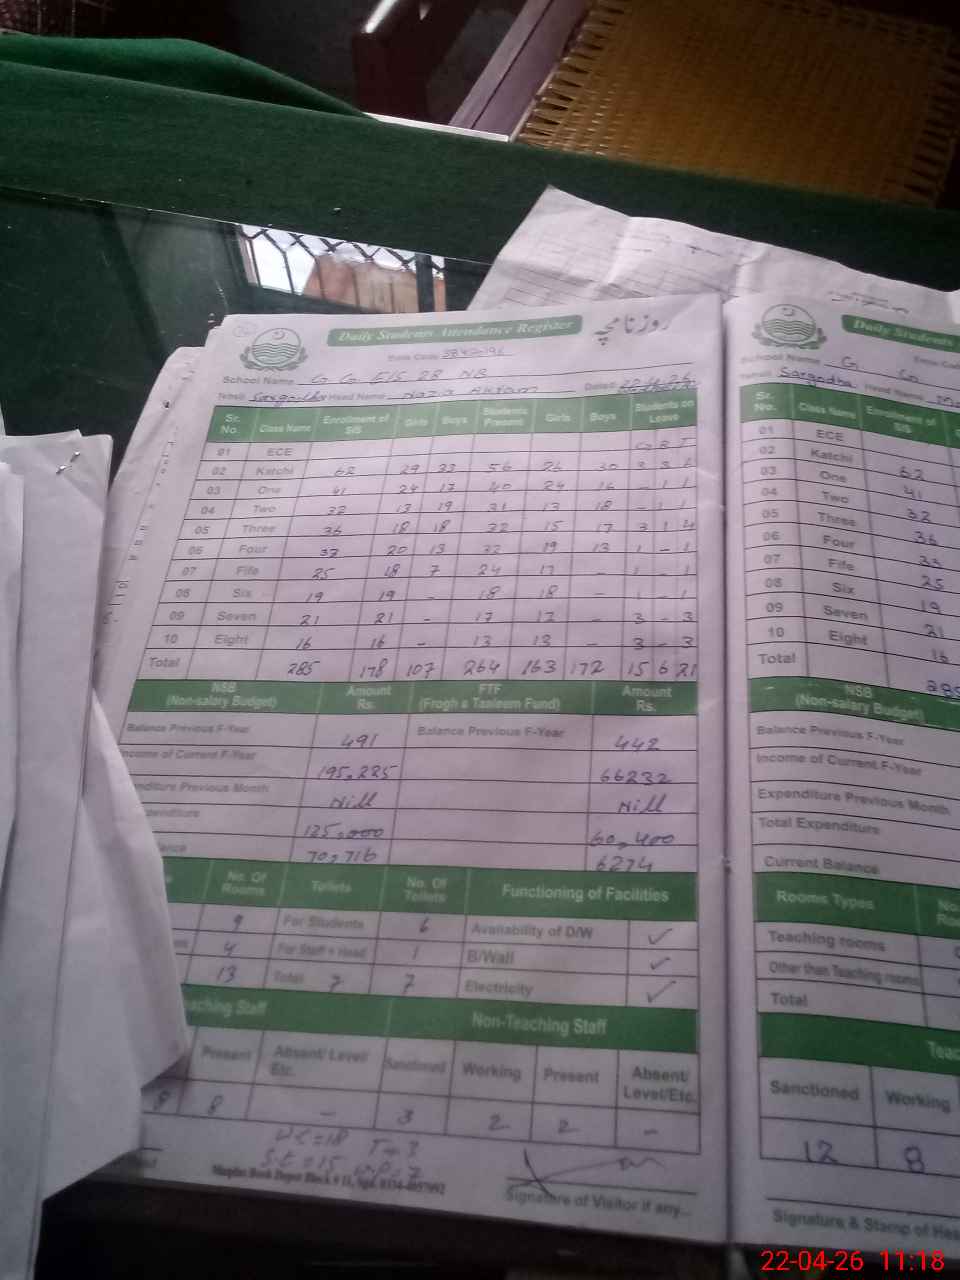 Daily Students Attendance Register روزنامچہ
School Name G G E/S 28 NB
Tehsil Sargodha Head Name Nazia Akram Dated
Sr. No. Class Name Enrollment of SIS Girls Boys Students Present Girls Boys Students on Leave
01 ECE G B T
02 Katchi 62 29 33 56 26 30 3 3 6
03 One 41 24 17 40 24 16 - 1 1
04 Two 32 13 19 31 13 18 - 1 1
05 Three 36 18 18 32 15 17 3 1 4
06 Four 33 20 13 32 19 13 1 - 1
07 Fife 25 18 7 24 17 - 1 - 1
08 Six 19 19 - 18 18 - 1 - 1
09 Seven 21 21 - 17 17 - 3 - 3
10 Eight 16 16 - 13 13 - 3 - 3
Total 285 178 107 264 163 172 15 6 21
NSB (Non-salary Budget) Amount Rs. FTF (Frogh a Taaleem Fund) Amount Rs.
Balance Previous F-Year 491 Balance Previous F-Year 442
Income of Current F-Year 195,225 66232
nditure Previous Month Nill Nill
penditure 125,000 60,400
lance 70,716 6274
No. Of Rooms Toilets No. Of Toilets Functioning of Facilities
9 For Students 6 Availability of D/W ✓
4 For Staff + Head 1 B/Wall ✓
13 Total 7 7 Electricity ✓
aching Staff Non-Teaching Staff
Present Absent/ Level/ Etc. Sanctioned Working Present Absent/ Level/Etc.
8 8 - 3 2 2 -
Signature of Visitor if any...
Daily Students
School Name G G
Tehsil Sargodha Head Name
Sr. No. Class Name Enrollment of SIS
01 ECE
02 Katchi 62
03 One 41
04 Two 32
05 Three 36
06 Four 33
07 Fife 25
08 Six 19
09 Seven 21
10 Eight 16
Total 285
NSB (Non-salary Budget)
Balance Previous F-Year
Income of Current F-Year
Expenditure Previous Month
Total Expenditure
Current Balance
Rooms Types
Teaching rooms
Other than Teaching rooms
Total
Sanctioned Working
12 8
Signature & Stamp of Hea
22-04-26 11:18